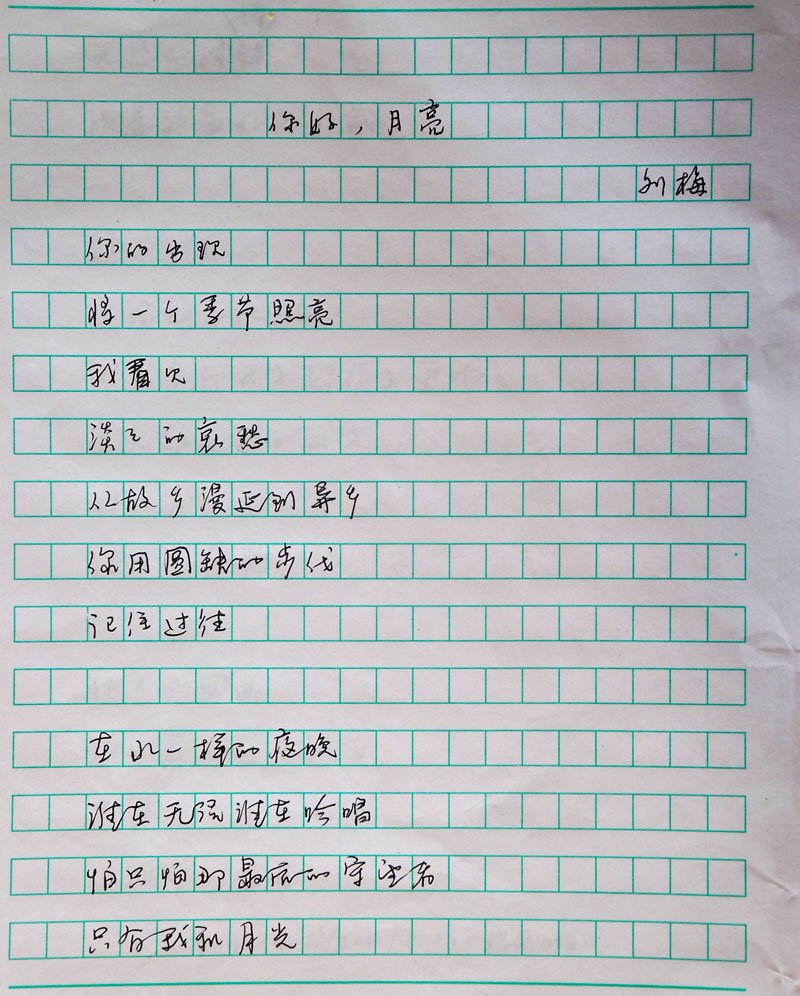 你好，月亮
刘梅
你的出现
将一个季节照亮
我看见
淡淡的哀愁
从故乡漫延到异乡
你用圆缺的步伐
记住过往
在水一样的夜晚
谁在无强谁在吟唱
怕只怕那最后的守望者
只有我和月光